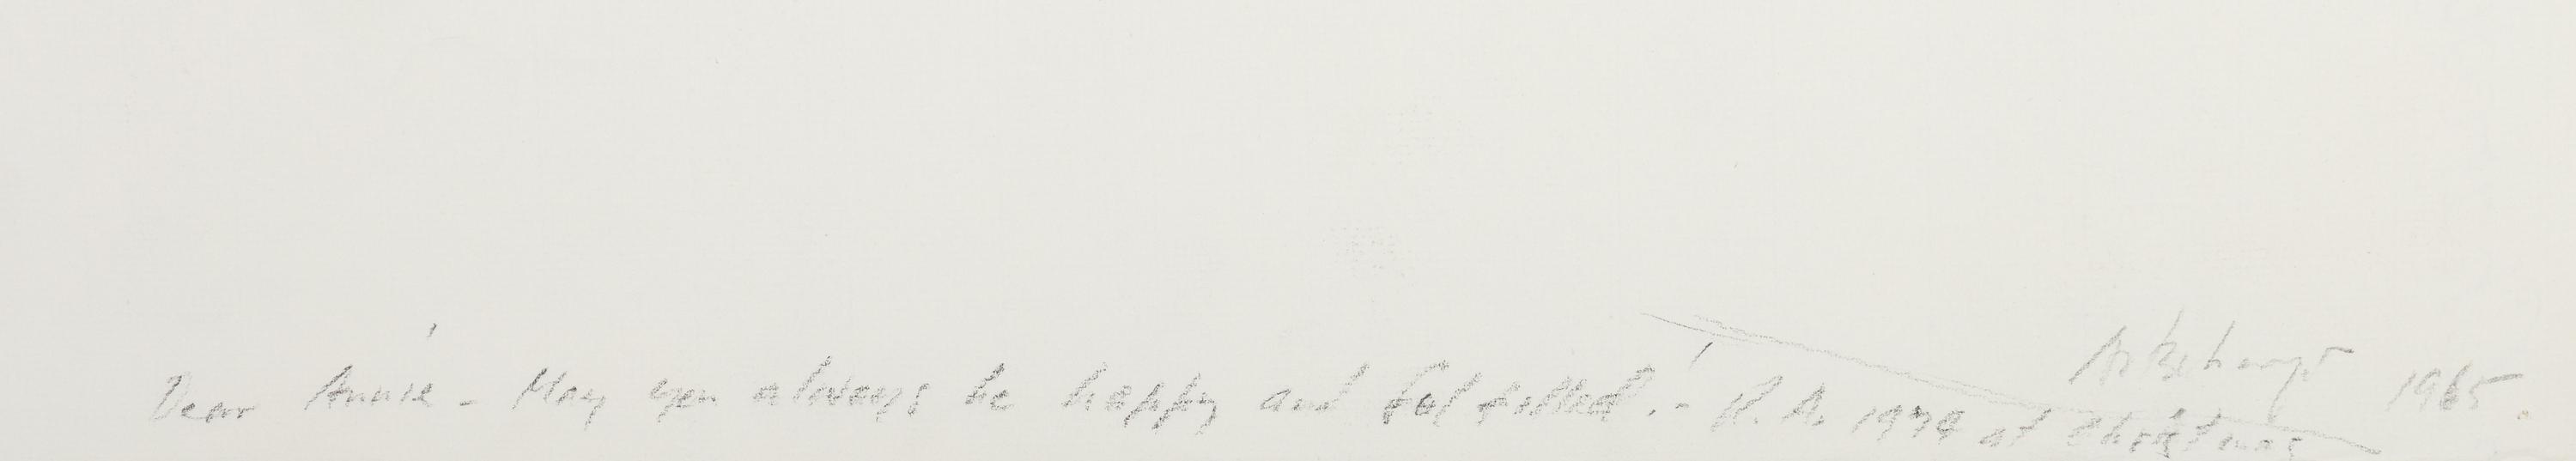 1965.
Dear Annie - May you always be happy and fulfilled! - R. A. 1974 at Christmas